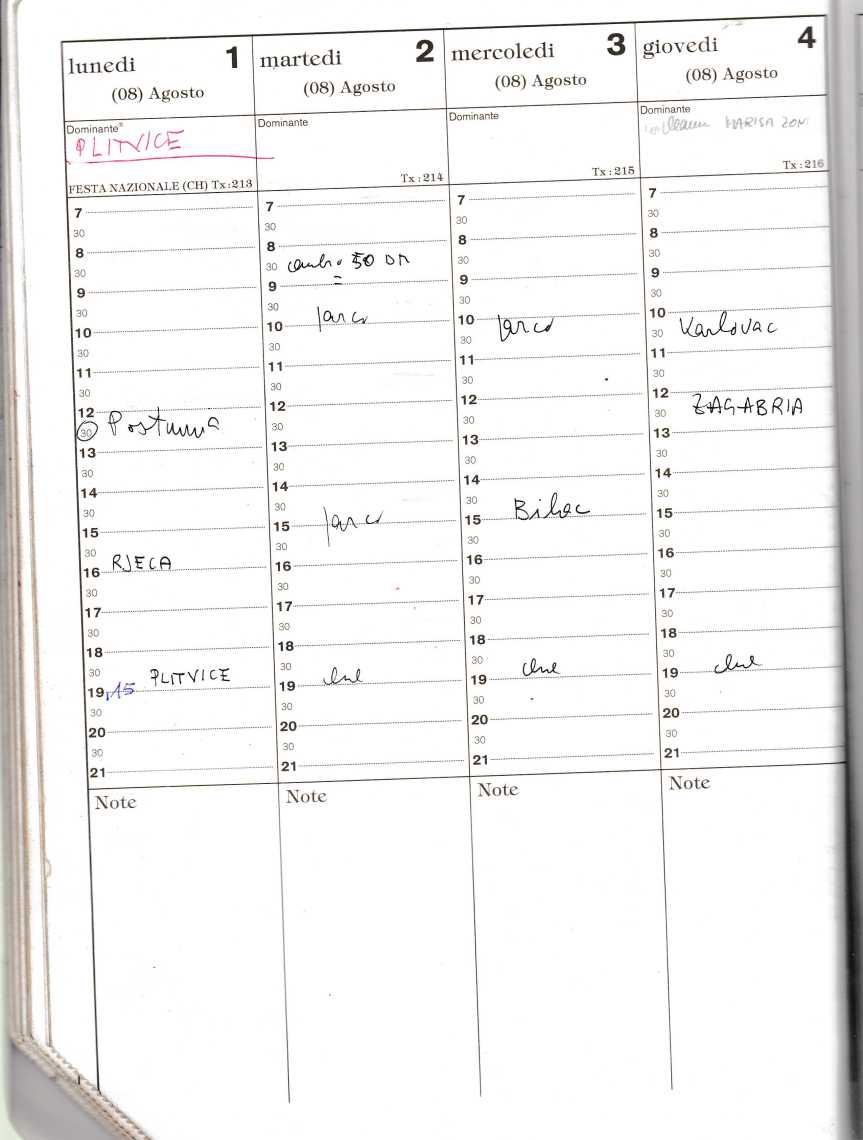 lunedi 1
(08) Agosto
Dominante
PLITVICE
FESTA NAZIONALE (CH) Tx:213
7
30
8
30
9
30
10
30
11
30
12
30 Postumia
13
30
14
30
15
30
16 RJECA
30
17
30
18
30
19,15 PLITVICE
30
20
30
21
Note
martedi 2
(08) Agosto
Dominante
Tx:214
7
30
8
30 cambio 50 DM
9
30
10 parco
30
11
30
12
30
13
30
14
30
15 parco
30
16
30
17
30
18
30
19
30
20
30
21
Note
mercoledi 3
(08) Agosto
Dominante
Tx:215
7
30
8
30
9
30
10 parco
30
11
30
12
30
13
30
14
30
15 Bihac
30
16
30
17
30
18
30
19
30
20
30
21
Note
giovedi 4
(08) Agosto
Dominante
MARISA ZON
Tx:216
7
30
8
30
9
30
10
30 Karlovac
11
30
12
30 ZAGABRIA
13
30
14
30
15
30
16
30
17
30
18
30
19
30
20
30
21
Note